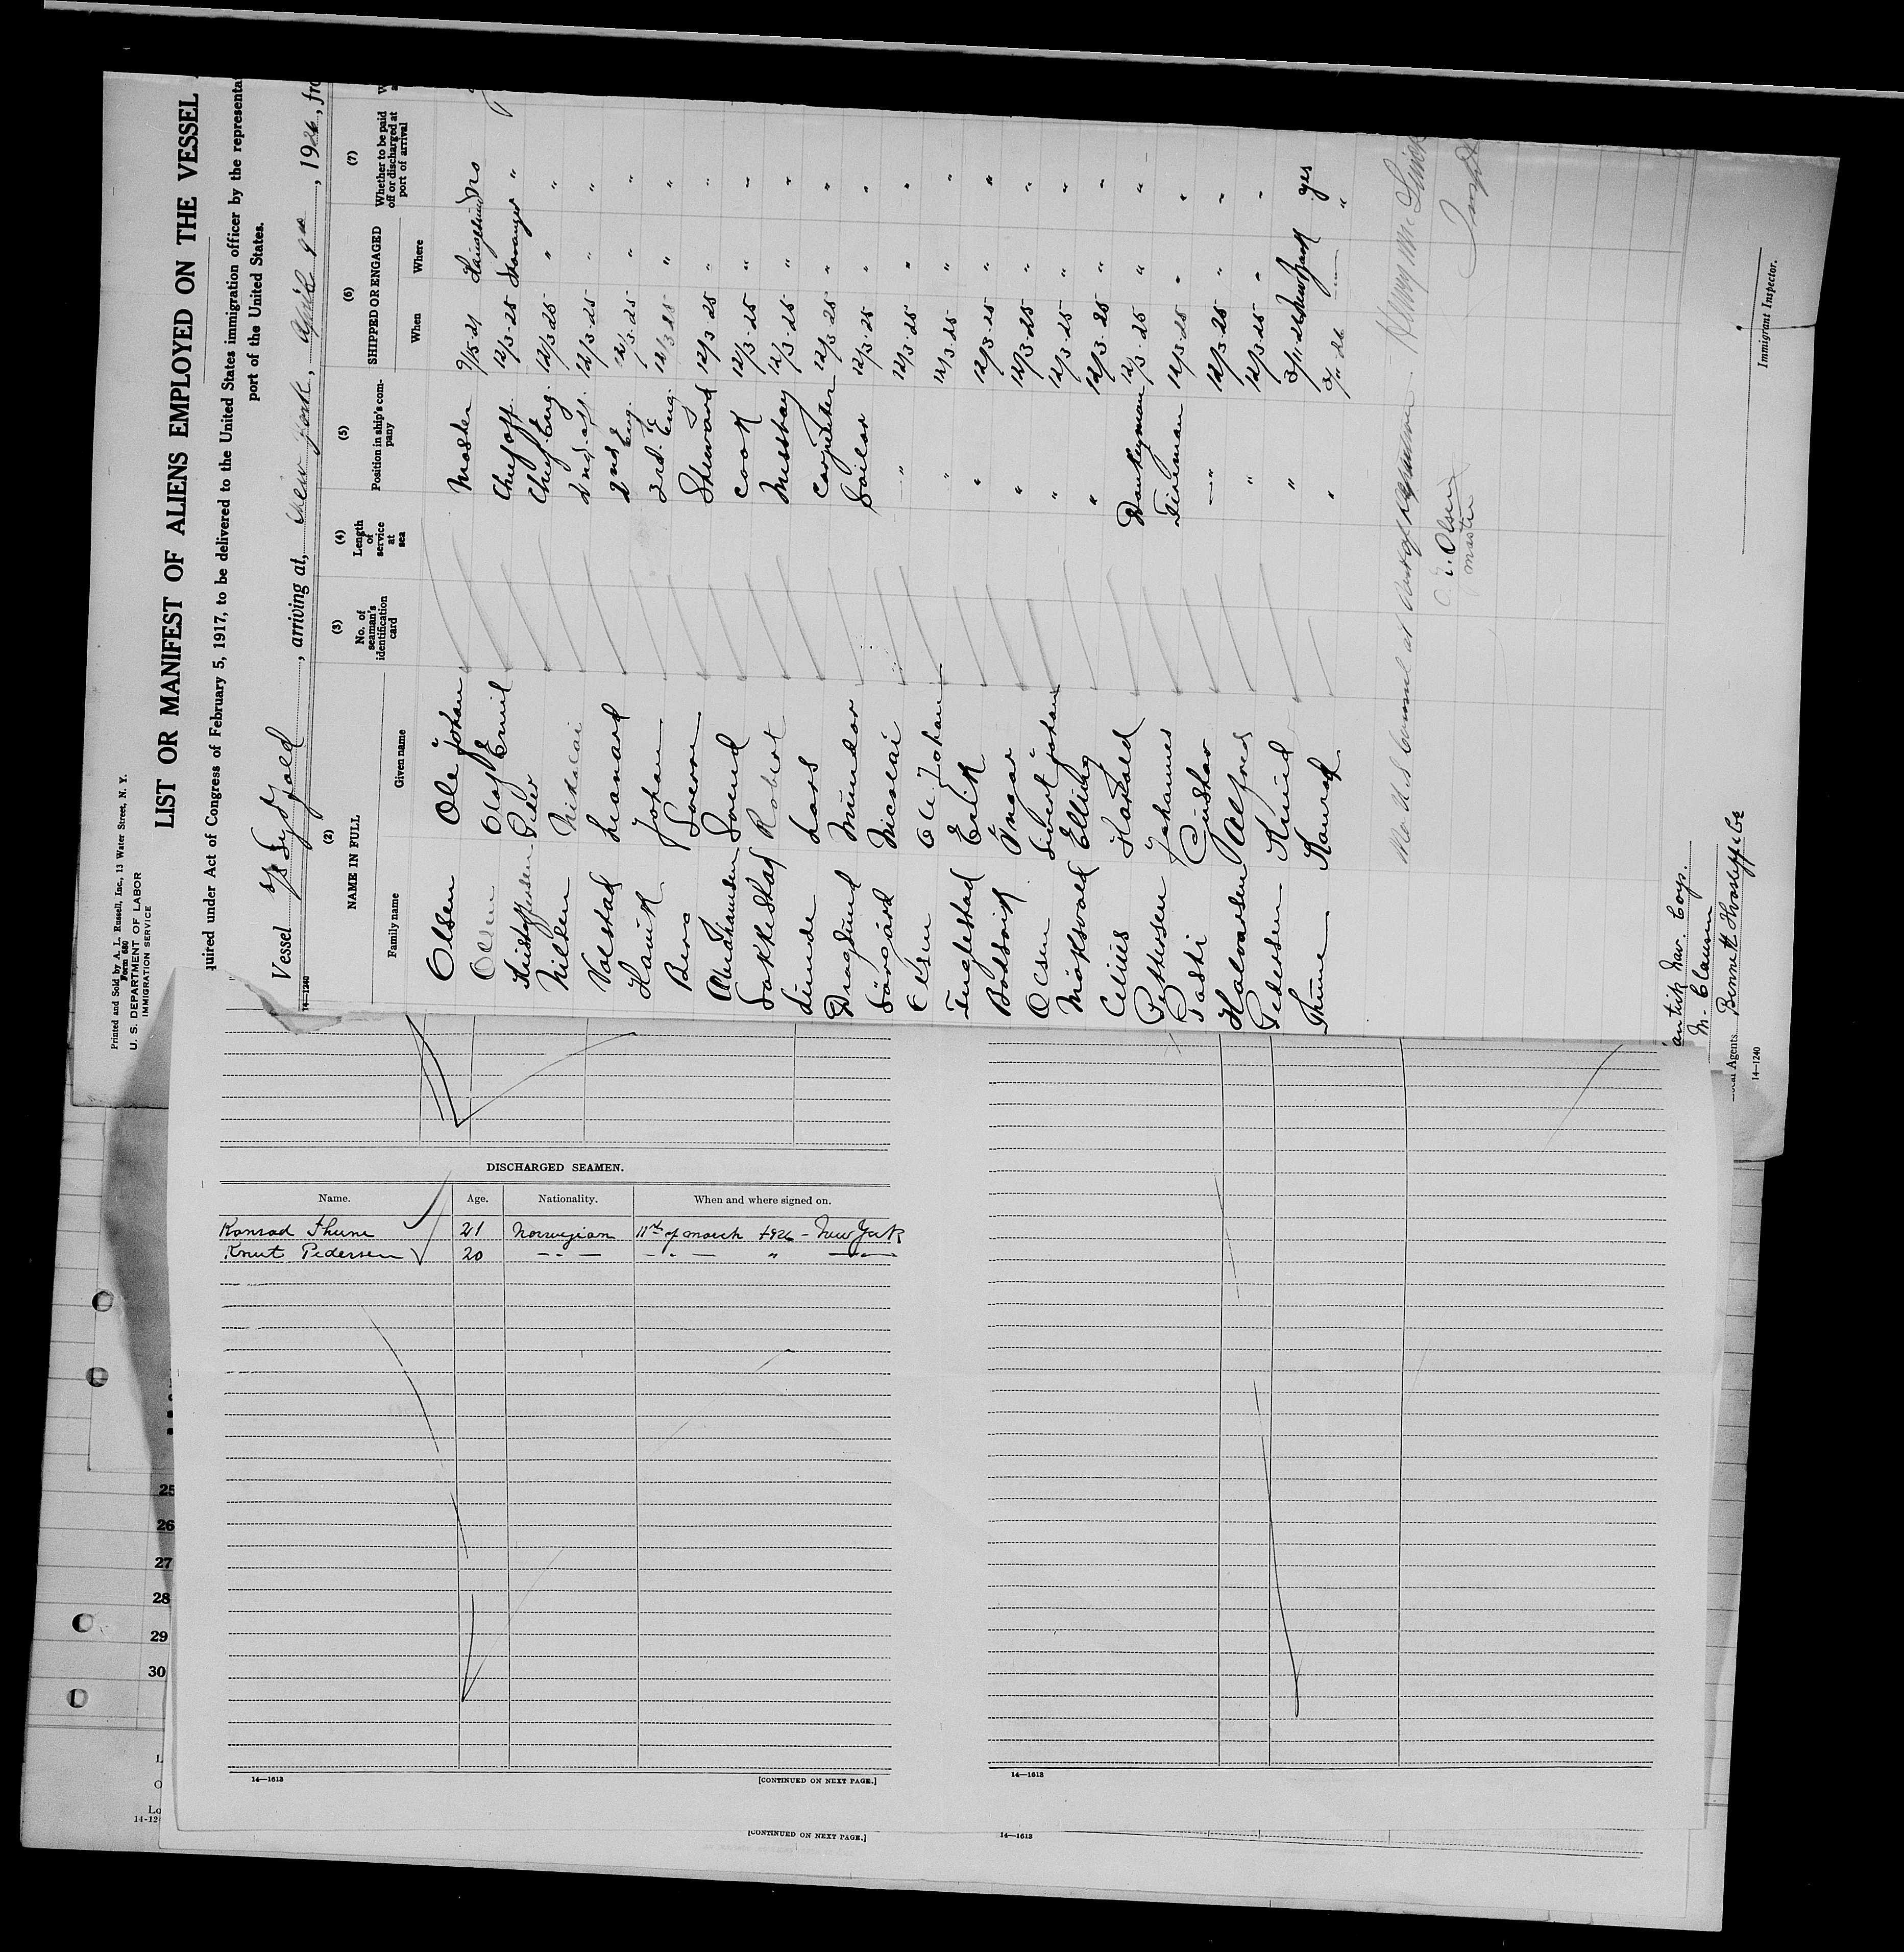 Printed and Sold by A. L. Russell, Inc., 13 Water Street, N. Y.
Form 680
U. S. DEPARTMENT OF LABOR
IMMIGRATION SERVICE
LIST OR MANIFEST OF ALIENS EMPLOYED ON THE VESSEL
quired under Act of Congress of February 5, 1917, to be delivered to the United States immigration officer by the representa
port of the United States.
Vessel S/S Sydfold, arriving at, New York, April 9th, 1926, fro
14—1240
(2) NAME IN FULL
Family name Given name
(3) No. of seaman's identification card
(4) Length of service at sea
(5) Position in ship's company
(6) SHIPPED OR ENGAGED
When Where
(7) Whether to be paid off or discharged at port of arrival
Olsen Ole Johan Master Haugesund no
Olsen Olaf Emil Chief off. 12/3-25 Stavanger "
Peder Chief Eng. 12/3-25 " "
Nilsen Nikolai 2nd off. 12/3-25 " "
Volstad Leonard 2nd Eng. 12/3-25 " "
Hauik Johan 3rd Eng. 12/3-25 " "
Soeren Steward 12/3-25 " "
Abrahamsen Sovend Cook 12/3-25 " "
Sokkestad Robert Messboy 12/3-25 " "
Lunde Lars Carpenter 12/3-25 " "
Dragsund Mundor Sailor 12/3-25 " "
Sørgård Nicolai " 12/3-25 " "
Olsen Ole Johan " 12/3-25 " "
Tenglestad Erlik " 12/3-25 " "
Ingar " 12/3-25 " "
Olsen Sivert Johan " 12/3-25 " "
Elling " 12/3-25 " "
Harald Donkeyman 12/3-25 " "
Pettersen Johannes Fireman 12/3-25 " "
Gustav " 12/3-25 " "
Halvorsen Alfred " 12/3-25 " "
Pedersen Knud " 3/11-26 New York yes
Thune Konrad " 3/11-26 " "
O. J. Olsen
Master
antik Nav. Corp.
M. Clausen
Agents Bennett Hvoslef & Co
14—1240
Immigrant Inspector.
DISCHARGED SEAMEN.
Name. Age. Nationality. When and where signed on.
Konrad Thune 21 Norwegian 11th of march 1926 - New York
Knut Pedersen 20 — " — — " — " — " —
25
26
27
28
29
30
L
O
Lo
14-12
14—1613 [CONTINUED ON NEXT PAGE.] 14—1613
[CONTINUED ON NEXT PAGE.] 14—1613